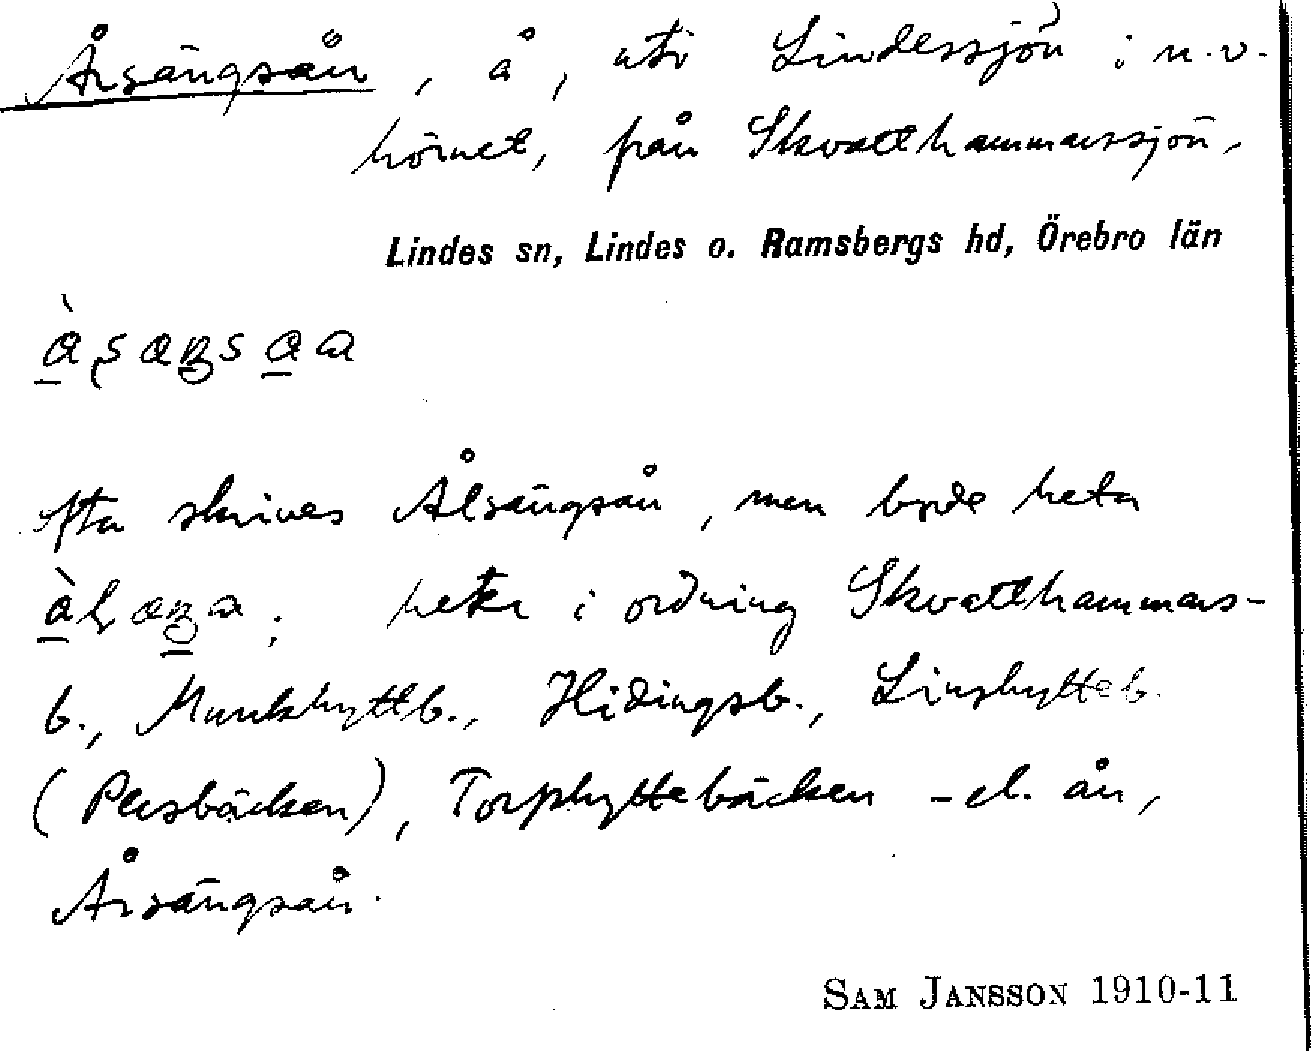 Årsängsån, å, uti Lindessjön i n.v.
hörnet, från Skvatthammarssjön,
Lindes sn, Lindes o. Ramsbergs hd, Örebro län
Ofta skrives Ålsängsån, men borde heta
heter i ordning Skvatthammars-
b., Munkhyttb., Hidingsb., Linghytteb.
(Persbäcken), Torphyttebäcken - el. ån,
Årsängsån.
SAM JANSSON 1910-11